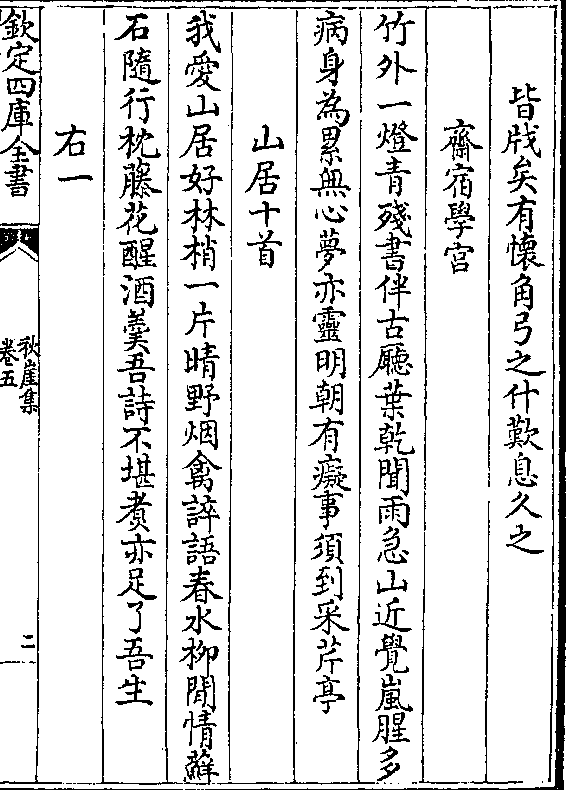 皆戕矣有懷角弓之什歎息久之
齋宿學宮
竹外一燈青殘書伴古廳葉乾聞雨急山近覺嵐腥多
病身為累無心夢亦靈明朝有癡事須到采芹亭
山居十首
我愛山居好林梢一片晴野烟禽誶語春水柳閒情蘚
石隨行枕藤花醒酒羮吾詩不堪煑亦足了吾生
右一
欽定四庫全書
秋崖集
卷五
二